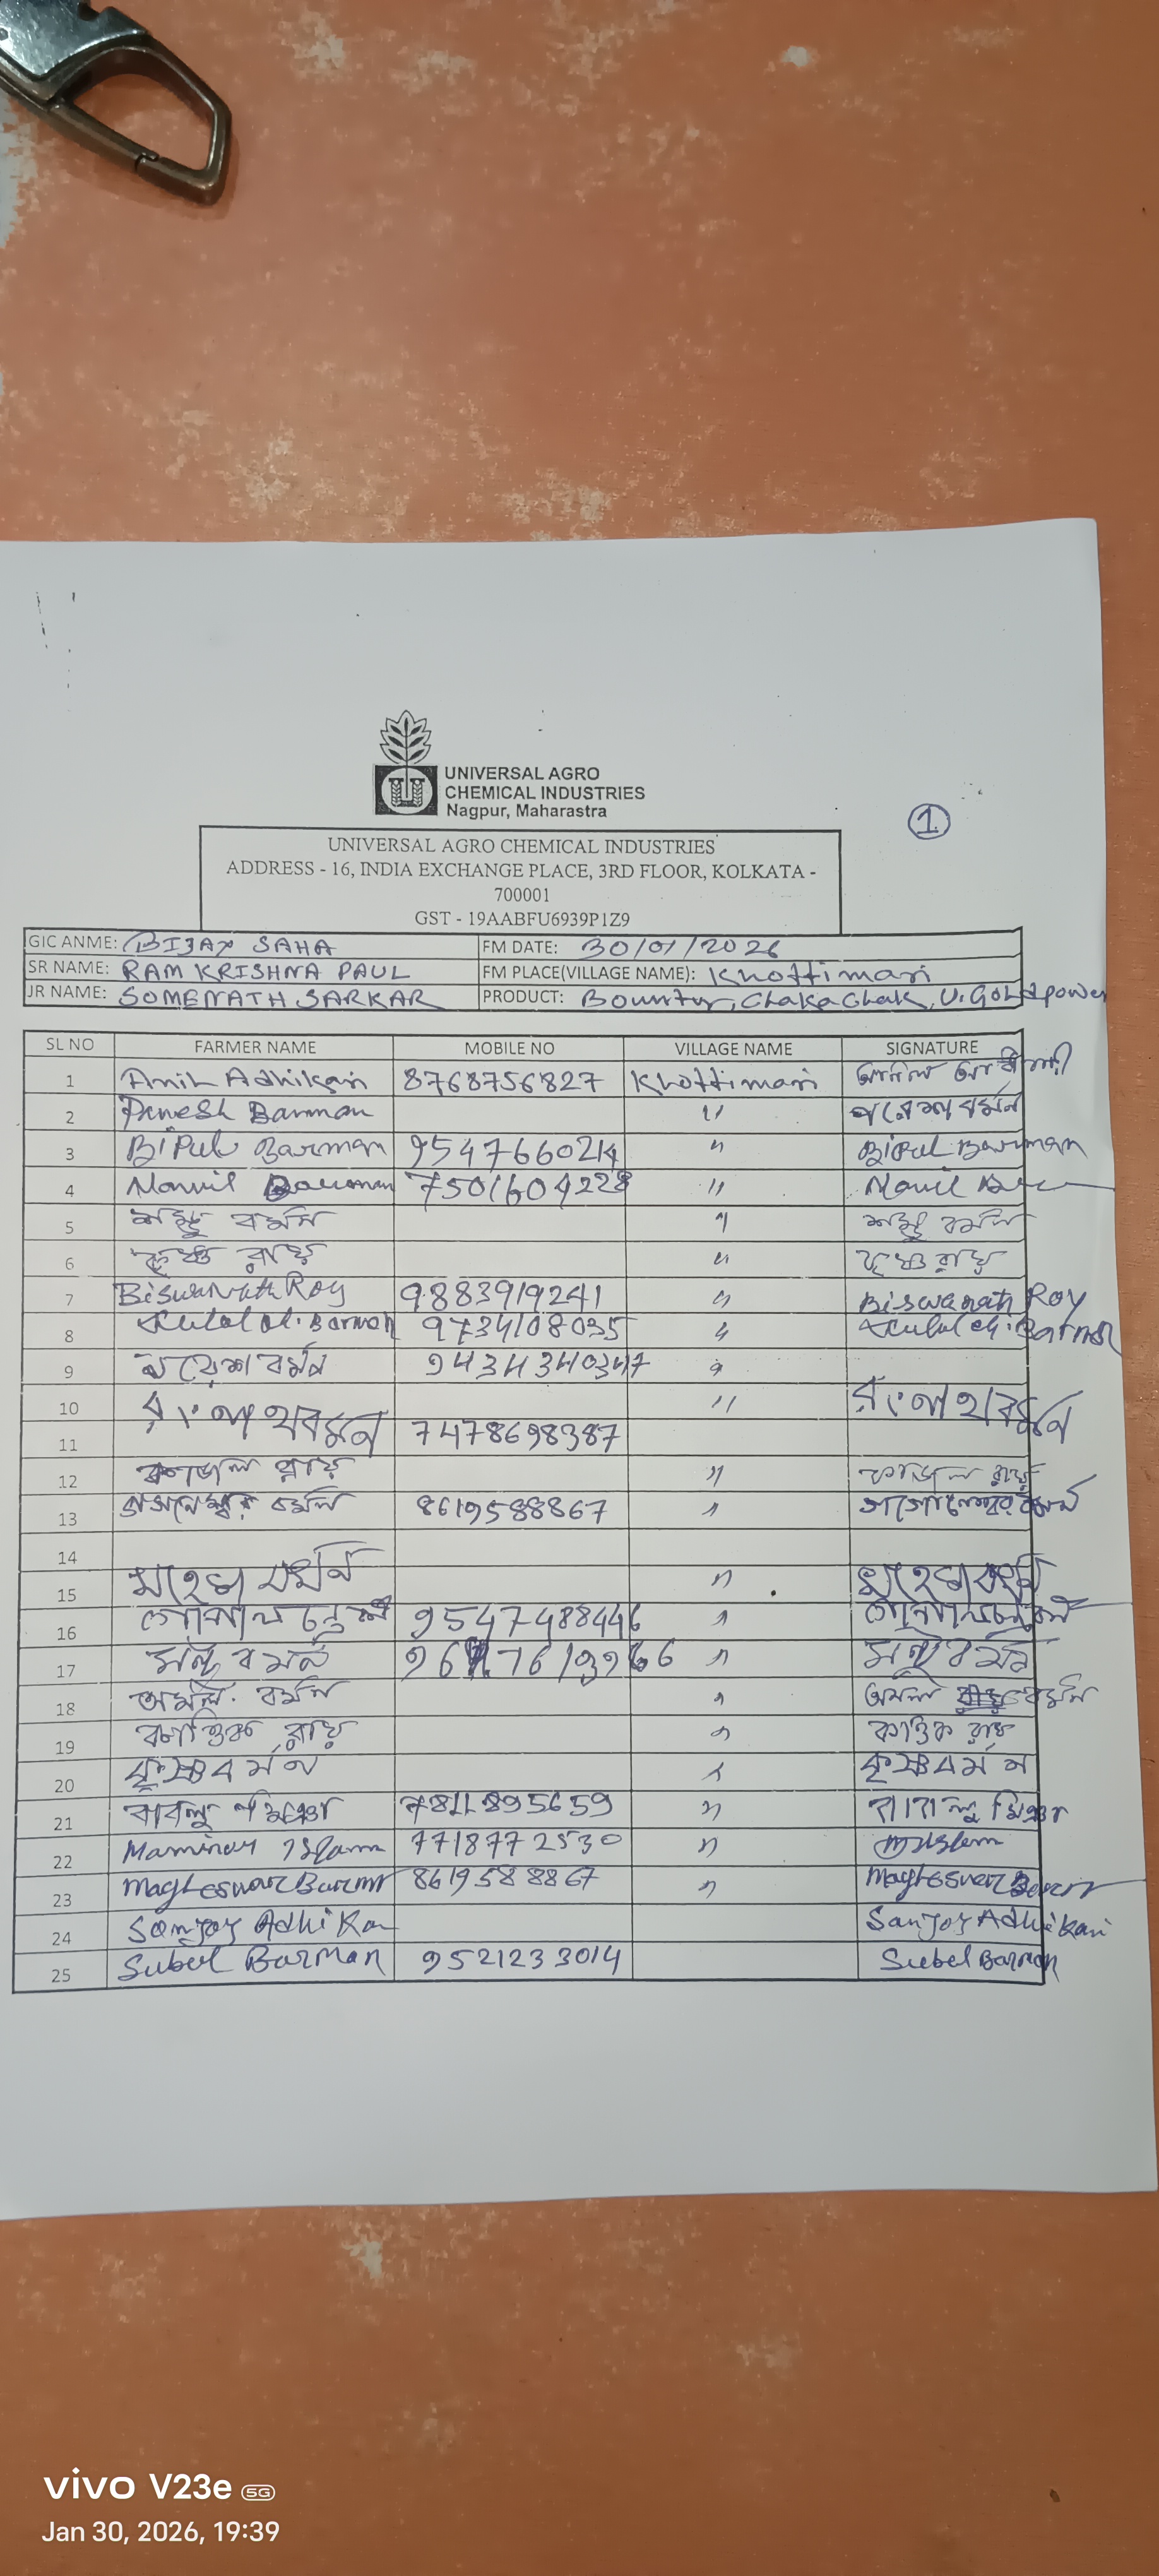 1
UNIVERSAL AGRO
CHEMICAL INDUSTRIES
Nagpur, Maharastra
UNIVERSAL AGRO CHEMICAL INDUSTRIES
ADDRESS - 16, INDIA EXCHANGE PLACE, 3RD FLOOR, KOLKATA -
700001
GST - 19AABFU6939P1Z9
GIC ANME: BIJAY SAHA FM DATE: 30/01/2026
SR NAME: RAM KRISHNA PAUL FM PLACE(VILLAGE NAME): Khottimari
JR NAME: SOMENATH SARKAR PRODUCT: Chaka Chak, U. Gold power
SL NO FARMER NAME MOBILE NO VILLAGE NAME SIGNATURE
1 Anil Adhikari 8768756827 Khottimari
2 Barman " পরেশ বর্মন
3 Bipul Barman 9547660214 " Bipul Barman
4 Barman 7501604228 "
5 শম্ভু বর্মন " শম্ভু বর্মন
6 কৃষ্ণ রায় " কৃষ্ণ রায়
7 Biswanath Roy 9883919241 " Biswanath Roy
8 Barman 9734108035 "
9 বর্মন "
10 "
11 7478698387
12 কাজল রায় " কাজল রায়
13 বর্মন 8619588867 "
14
15 "
16 গোপাল চন্দ্র 9547488446 "
17 বর্মন " বর্মন
18 অমল বর্মন " অমল বর্মন
19 কার্তিক রায় " কার্তিক রায়
20 কৃষ্ণ বর্মন " কৃষ্ণ বর্মন
21 বাবলু মিঞা 7811895659 " বাবলু মিঞা
22 7718772530 "
23 Magheswar Barman 8619588867 " Magheswar
24 Sanjoy Adhikari Sanjoy Adhikari
25 Subol Barman 9521233014 Subol Barman
vivo V23e 5G
Jan 30, 2026, 19:39